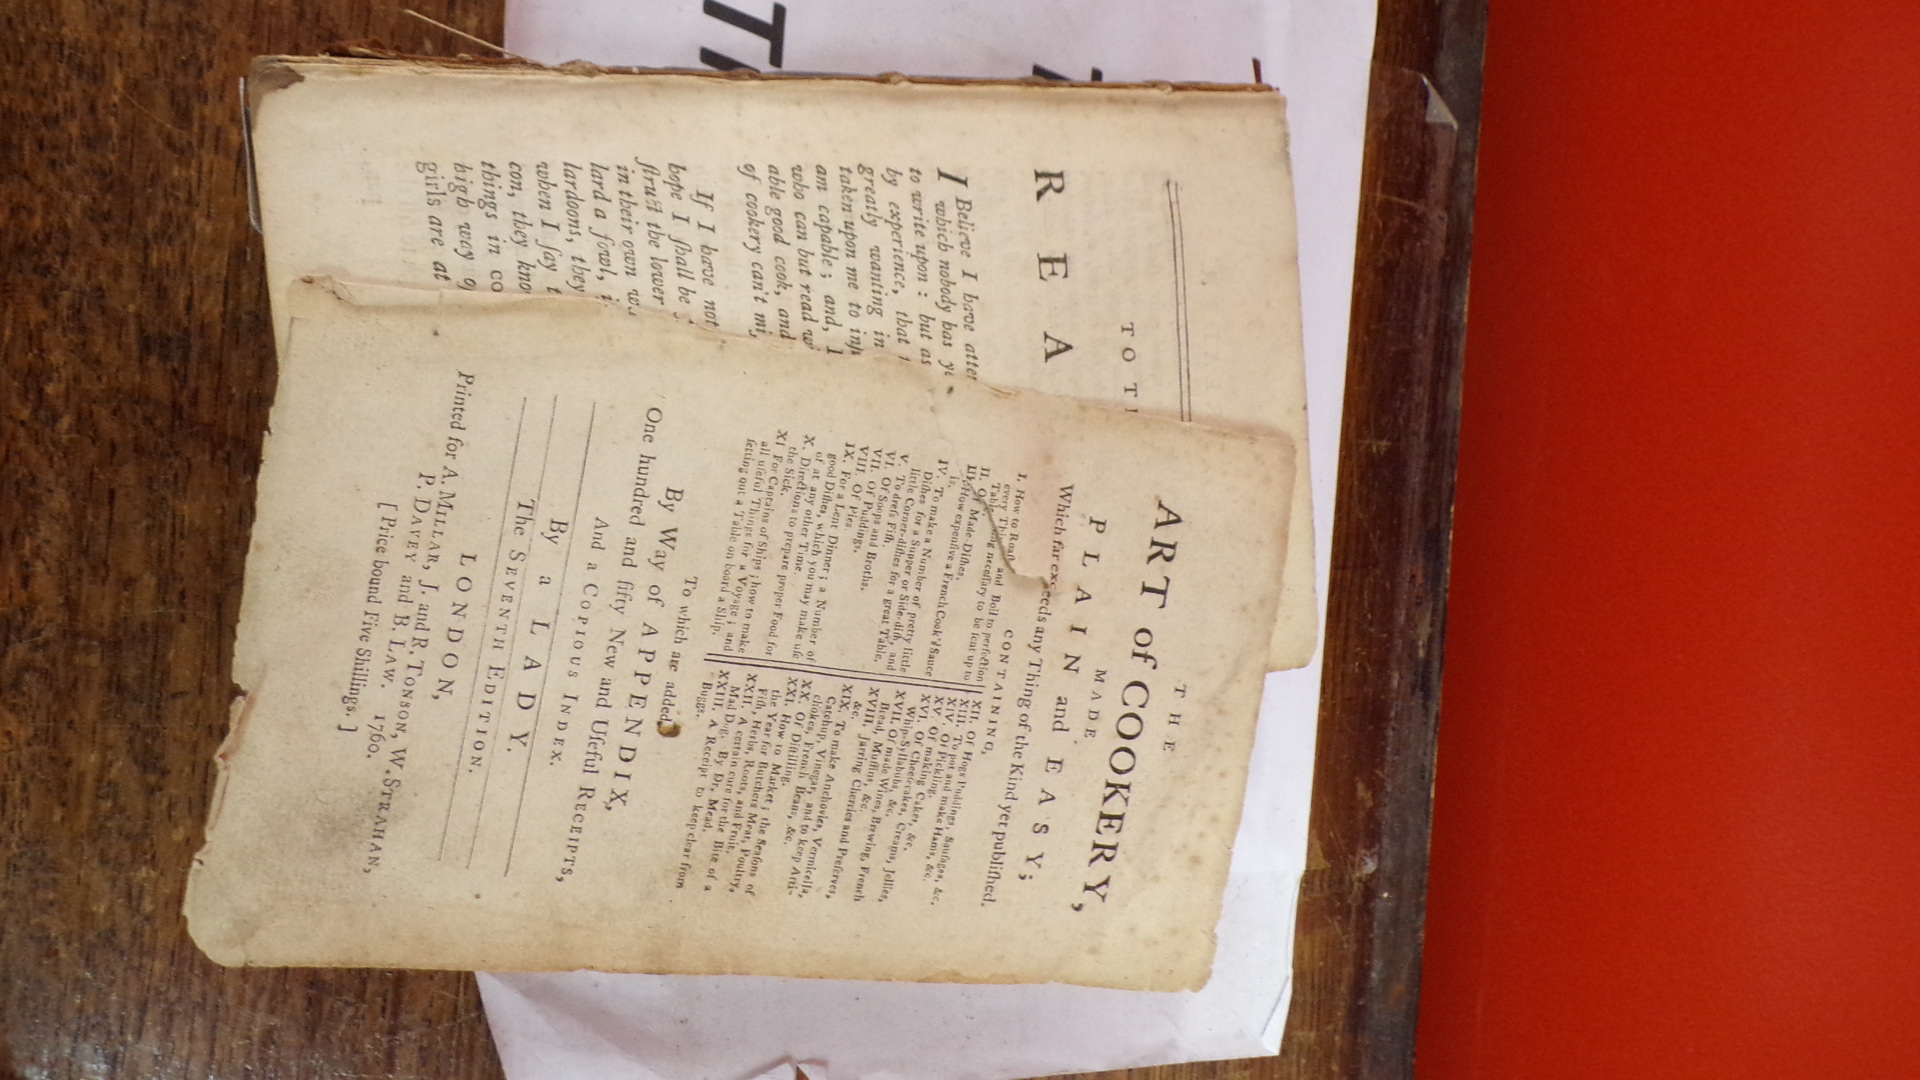 THE
ART of COOKERY,
MADE
PLAIN and EASY;
Which far exceeds any Thing of the Kind yet publiſhed.
CONTAINING,
I. How to Roaſt and Boil to perfection
every Thing neceſſary to be ſent up to
Table.
II. Of Made-Diſhes.
III. How expenſive a French Cook's Sauce
is.
IV. To make a Number of pretty little
Diſhes for a Supper or Side-diſh, and
little Corner-diſhes for a great Table.
V. To dreſs Fiſh.
VI. Of Soops and Broths.
VII. Of Puddings.
VIII. Of Pies
IX. For a Lent Dinner; a Number of
good Diſhes, which you may make uſe
of at any other Time.
X. Directions to prepare proper Food for
the Sick.
XI For Captains of Ships; how to make
all uſeful Things for a Voyage; and
ſetting out a Table on board a Ship.
XII. Of Hogs Puddings, Sauſages, &c.
XIII. To pot and make Hams, &c.
XIV. Of Pickling.
XV. Of making Cakes, &c.
XVI. Of Cheeſecakes, Creams, Jellies,
Whip-Syllabubs, &c.
XVII. Of made Wines, Brewing, French
Bread, Muffins, &c.
XVIII. Jarring Cherries and Preſerves,
&c.
XIX. To make Anchovies, Vermicella,
Catchup, Vinegar, and to keep Arti-
chokes, French Beans, &c.
XX. Of Diſtilling.
XXI. How to Market; the Seaſons of
the Year for Butchers Meat, Poultry,
Fiſh, Herbs, Roots, and Fruit.
XXII. A certain cure for the Bite of a
Mad Dog. By Dr. Mead.
XXIII. A Receipt to keep clear from
Buggs.
To which are added,
By Way of APPENDIX,
One hundred and fifty New and Uſeful RECEIPTS,
And a COPIOUS INDEX.
By a LADY.
The SEVENTH EDITION.
LONDON,
Printed for A. MILLAR, J. and R. TONSON, W. STRAHAN,
P. DAVEY and B. LAW. 1760.
[ Price bound Five Shillings. ]
TO
REA
I Believe I have
which nobody has
to write upon: but as
by experience, that
greatly wanting in
taken upon me to
am capable; and, I
who can but read
able good cook, and
of cookery can't
If I have not
hope I ſhall be
ſtruct the lower
in their own
lard a fowl,
lardoons, they
when I ſay
con, they
things in
high way
girls are at